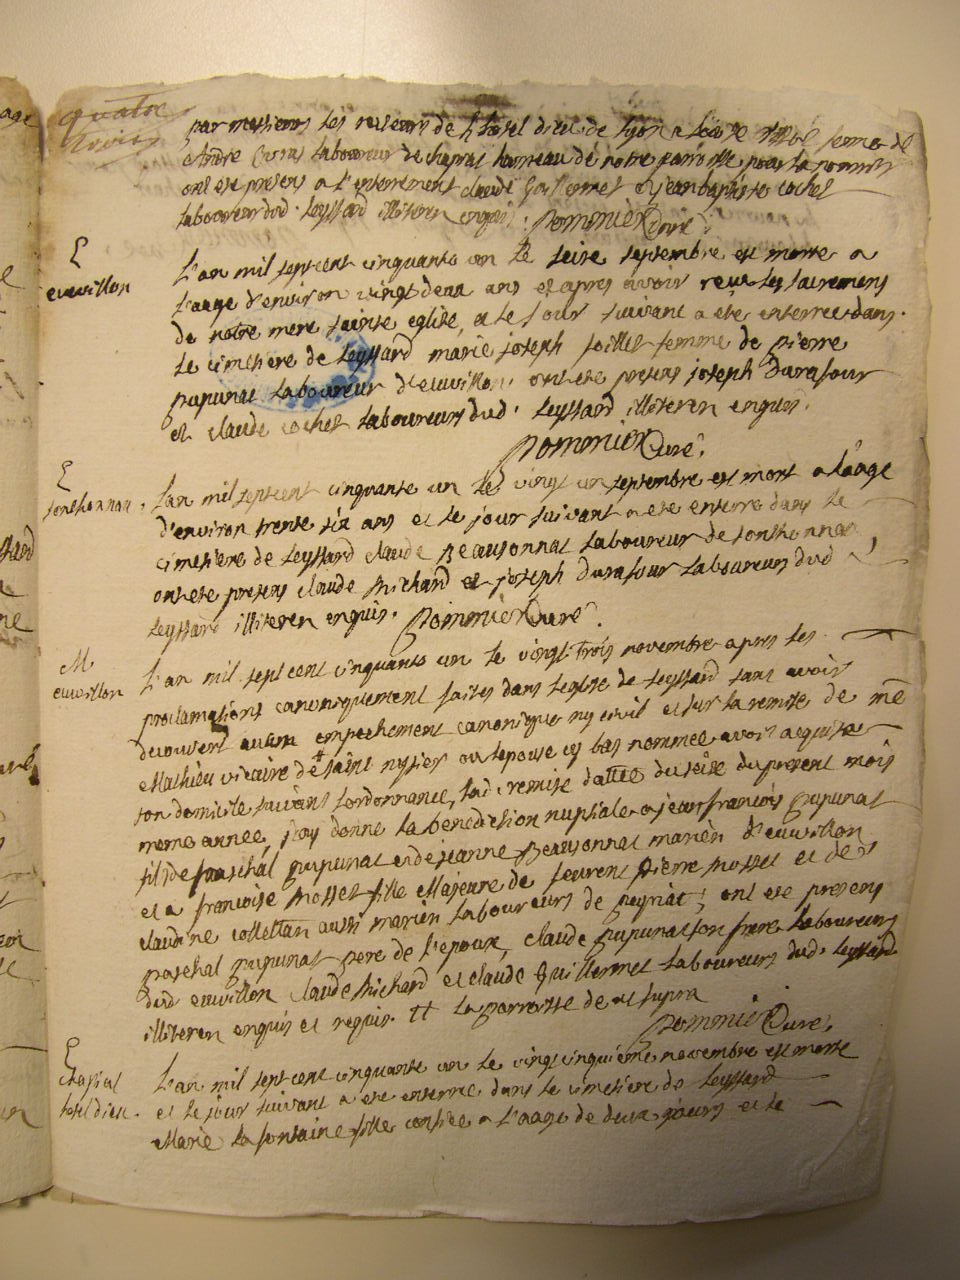 quatre
par messieurs les recteurs de l'hotel dieu de lyon a femme de
andre laboureur de chapiat hameau de notre parroisse pour la nourrir
ont ete presens a l'enterrement claude Guillermet et jean baptiste cochet
laboureur dud. leyssard illiteren enquis. Pommier Curé.
E
euuvillon
L'an mil sept cent cinquante un le seize septembre est morte a
l'aage d'environ vingt deux ans et apres avoir reçu les sacremens
de notre mere sainte eglise, et le jour suivant a ete enterree dans
le cimetiere de leyssard marie joseph femme de pierre
pupunat laboureur d'euuvillon. ont ete presens joseph Durafour
et claude cochet laboureurs dud. leyssard illiteren enquis.
Pommier Curé.
E
sonthonnax.
L'an mil sept cent cinquante un le vingt un septembre est mort a l'aage
d'environ trente six ans et le jour suivant a ete enterre dans le
cimetiere de leyssard claude Beausonnat laboureur de sonthonnax
ont ete presens claude Michard et joseph durafour laboureurs dud
leyssard illiteren enquis. Pommier Curé.
M
euuvillon
L'an mil sept cent cinquante un le vingt trois novembre apres les
proclamations canoniquement faites dans l'eglise de leyssard sans avoir
decouvert aucun empechement canonique ny civil et sur la remise de me
Mathieu vicaire de # saint nysier ou l'epouse cy bas nommee avoit acquise
son domicile suivant l'ordonnance, lad. remise dattee du seize du present mois
meme annee, j'ay donne la benediction nuptiale a jean francois pupunat
fils de paschal pupunat et de jeanne Beausonnat mariés d'euuvillon
et a francoise Mosset fille Majeure de feurent pierre mosset et de
claudine collettan aussi mariés laboureurs de peyriat; ont ete presens
paschal pupunat pere de l'epoux, claude pupunat son frere laboureurs
dud euuvillon claude Michard et claude Guillermet laboureurs dud. leyssard
illiteren enquis et requis. # la parroisse de ut supra
Pommier Curé.
E
chapiat
hotel dieu.
L'an mil sept cent cinquante un le vingt cinquieme novembre est morte
et le jour suivant a ete enterree dans le cimetiere de leyssard
Marie la fontaine fille confiee a l'aage de deux jours et le